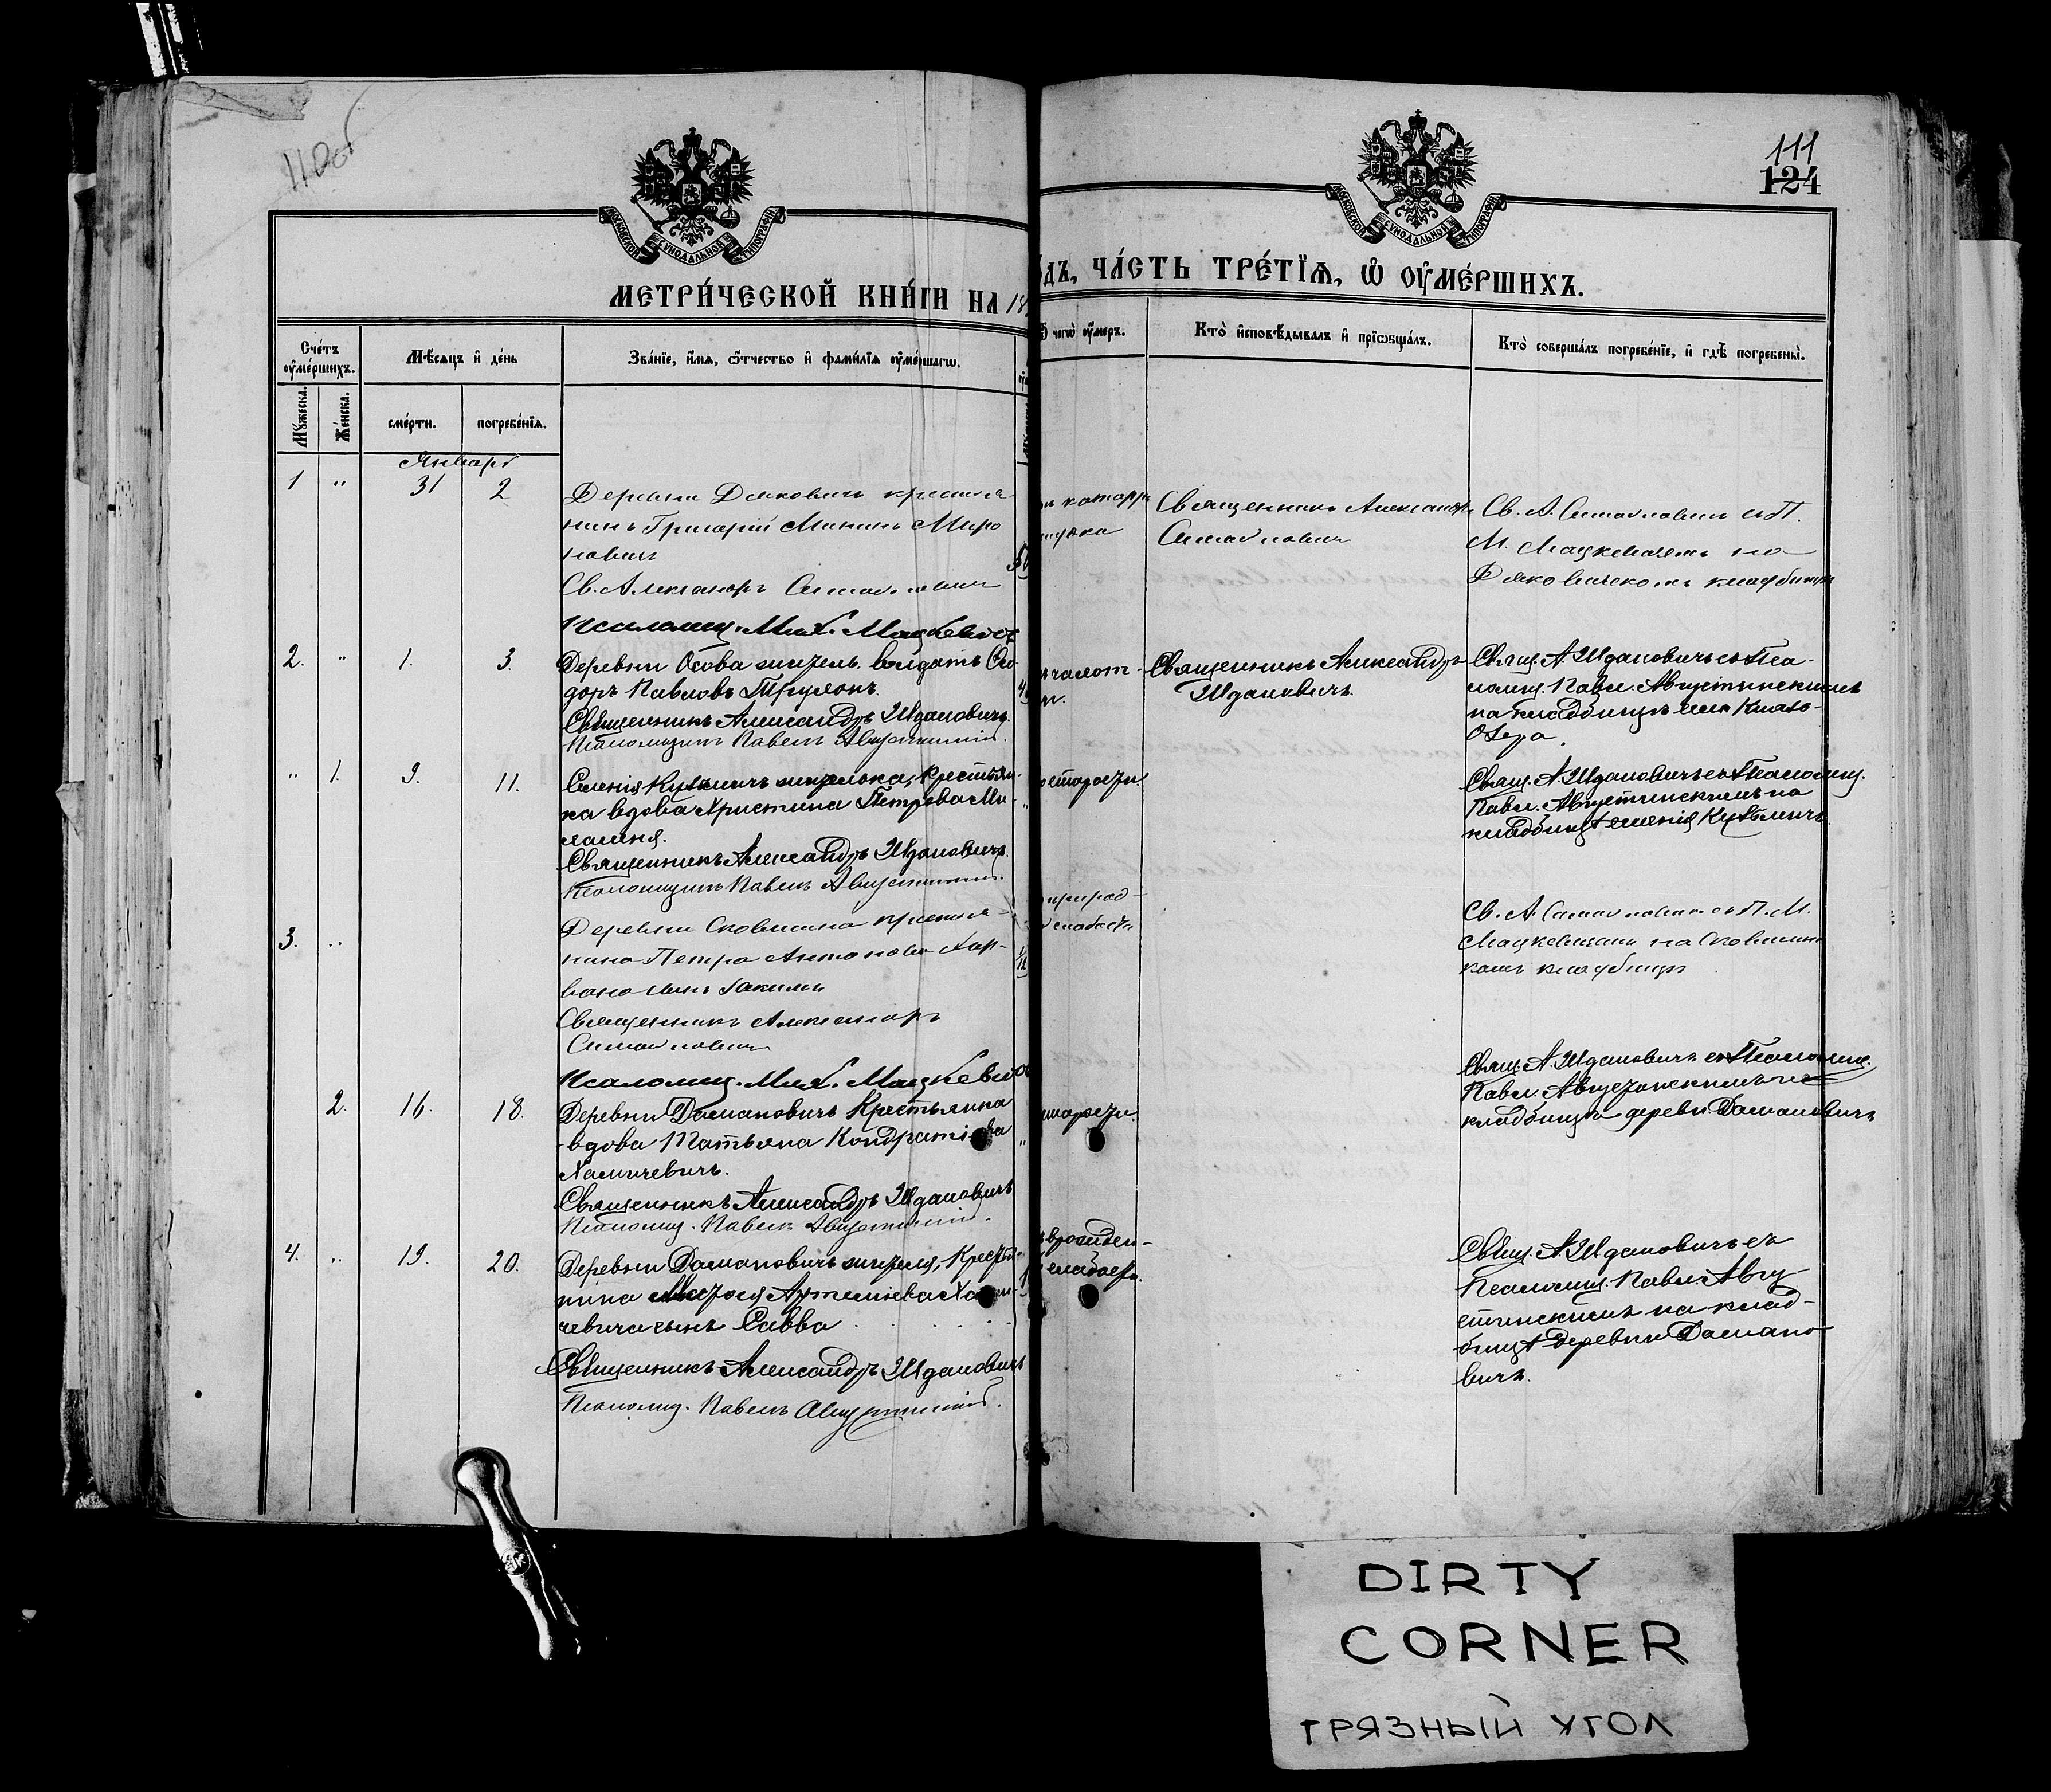 111
124
МОСКОВСКОЙ СѴНОДАЛЬНОЙ ТИПОГРАФІИ
МОСКОВСКОЙ СѴНОДАЛЬНОЙ ТИПОГРАФІИ
МЕТРИ́ЧЕСКОЙ КНИ́ГИ НА 18
ДЪ, ЧА́СТЬ ТРЕ́ТЇѦ, Ѽ ОУ҆МЕ́РШИХЪ.
Сче́тъ оу҆ме́ршихъ.
Мѣ́сяцъ и҆ де́нь
Зва́нїе, и҆́мѧ, ѻ҆́тчество и҆ фами́лїѧ оу҆ме́ршагѡ.
чегѡ̀ оу҆́меръ.
Кто̀ и҆сповѣ́дывалъ и҆ прїѡбща́лъ.
Кто̀ соверша́лъ погребе́нїе, и҆ гдѣ̀ погребены̀.
Му́жеска.
Же́нска.
сме́рти.
погребе́нїѧ.
Январь
1 " 31 2
Деревни Дяковичъ крестья-
нинъ Григорій Мининъ Миро
новичъ
Св. Александръ
Псаломщ. Мих. Мацкевичъ
катарр
Священникъ Александръ
Св. А. съ П.
М. Мацкевичемъ на
Дяковичскомъ кладбищѣ
2. " 1. 3.
Деревни Осова житель, солдатъ Ѳе-
доръ Павловъ
Священникъ Александръ Ждановичъ.
Псаломщикъ Павелъ Августинскій.
Священникъ Александръ
Ждановичъ.
Свящ. А. Ждановичъ съ Пса-
ломщ. Павл. Августинскимъ
на кладбищѣ
Озера.
" 1. 9. 11.
Селенія Кузьмичъ жителька, крестьян-
ка вдова Христина Петрова Ми-
Священникъ Александръ Ждановичъ.
Псаломщикъ Павелъ Августинскій.
старости.
Свящ. А. Ждановичъ съ Псаломщ.
Павл. Августинскимъ на
кладбищѣ селенія Кузьмичъ.
3. "
Деревни крестья-
нина Петра Антонова
сынъ Іакимъ
Священникъ Александръ
Псаломщ. Мих. Мацкевичъ
природ-
слабости
Св. А. съ П. М.
Мацкевичемъ на
комъ кладбищѣ
2. 16. 18.
Деревни Домановичъ Крестьянка
вдова Татьяна Кондратіева
Хамичевичъ.
Священникъ Александръ Ждановичъ
Псаломщ. Павелъ Августинскій.
старости.
Свящ. А. Ждановичъ съ Псаломщ.
Павл. Августинскимъ на
кладбищѣ деревни Домановичъ
4. " 19. 20.
Деревни Домановичъ жителя, Крестья-
нина Артемьева Хами-
чевича сынъ Савва
Священникъ Александръ Ждановичъ
Псаломщ. Павелъ Августинскій.
врожден-
слабости.
Свящ. А. Ждановичъ съ
Псаломщ. Павл. Авгу-
стинскимъ на клад-
бищѣ деревни Домано-
вичъ.
DIRTY
CORNER
ГРЯЗНЫЙ УГОЛ